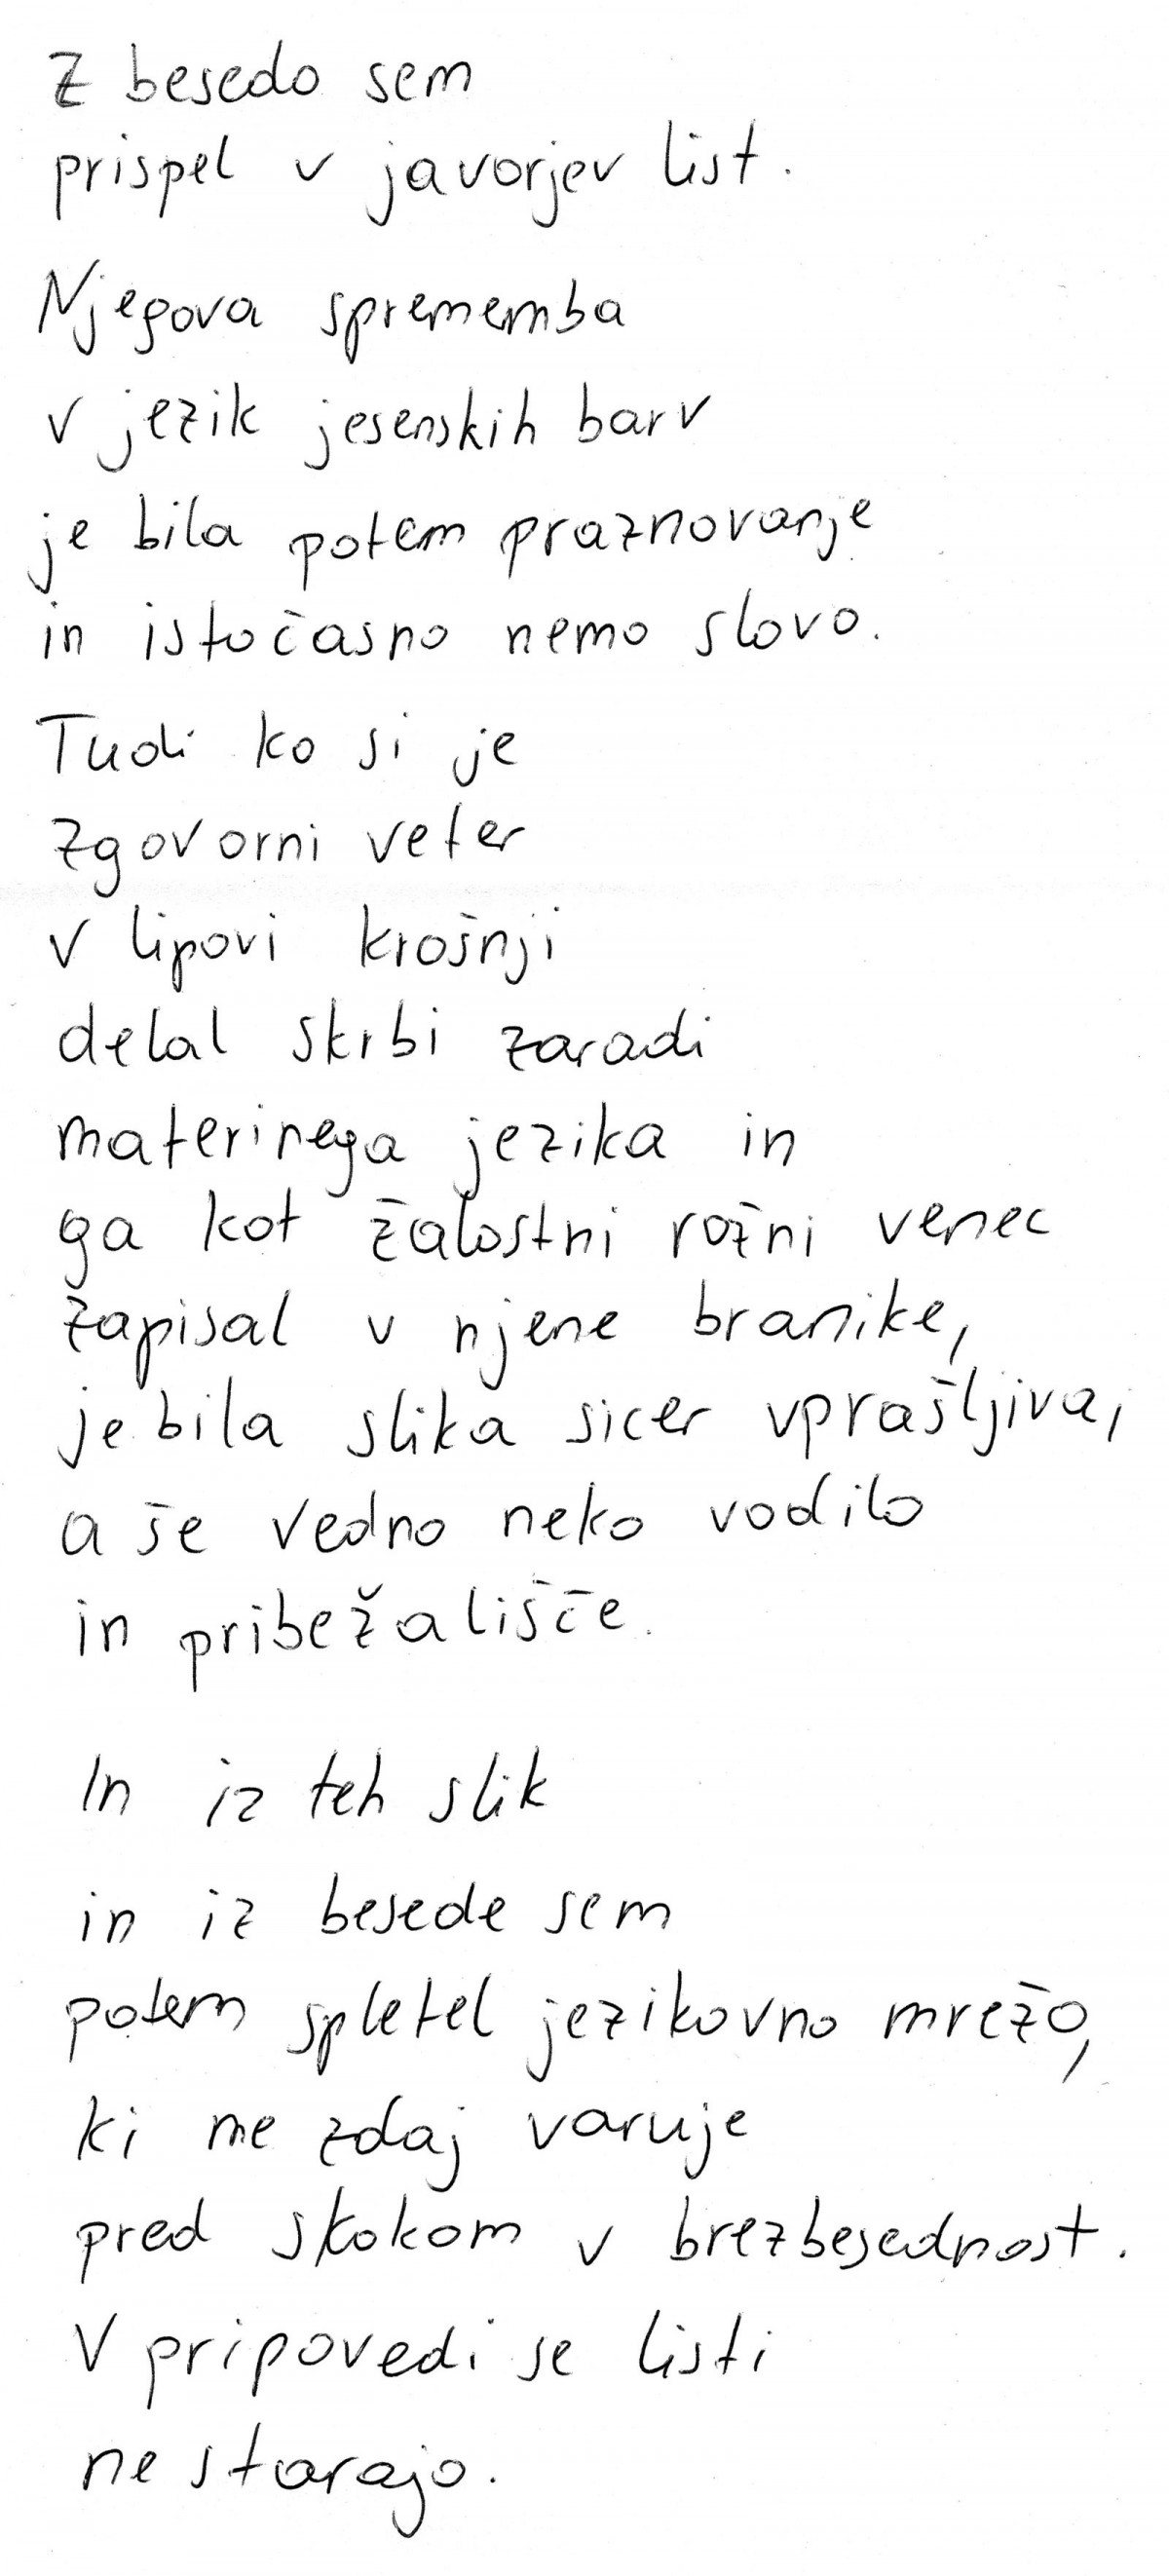 Z besedo sem
prispel v javorjev list.
Njegova sprememba
v jezik jesenskih barv
je bila potem praznovanje
in istočasno nemo slovo.
Tudi ko si je
zgovorni veter
v lipovi krošnji
delal skrbi zaradi
materinega jezika in
ga kot žalostni rožni venec
zapisal v njene branike,
je bila slika sicer vprašljiva,
a še vedno neko vodilo
in pribežališče.
In iz teh slik
in iz besede sem
potem spletel jezikovno mrežo,
ki me zdaj varuje
pred skokom v brezbesednost.
V pripovedi se listi
ne starajo.